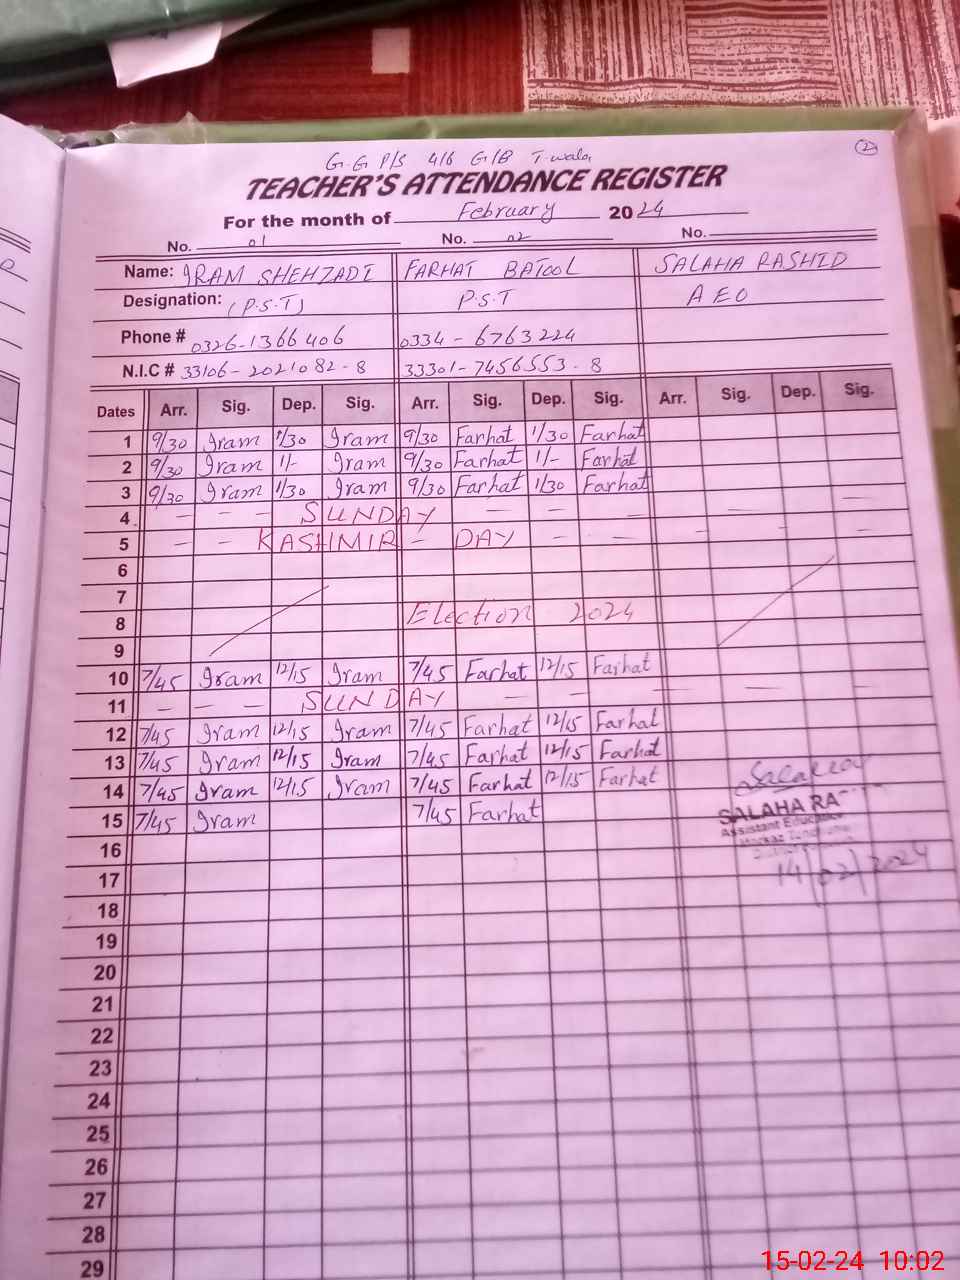 2
G.G P/S 416 G/B T-wala
TEACHER'S ATTENDANCE REGISTER
For the month of February 2024
No. 01 No. 02 No.
Name: IRAM SHEHZADI FARHAT BATOOL SALAHA RASHID
Designation: (P.S.T) P.S.T AEO
Phone # 0326-1366406 0334-6763224
N.I.C # 33106-2021082-8 33301-7456553-8
Dates Arr. Sig. Dep. Sig. Arr. Sig. Dep. Sig. Arr. Sig. Dep. Sig.
1 9/30 Iram 1/30 Iram 9/30 Farhat 1/30 Farhat
2 9/30 Iram 1/- Iram 9/30 Farhat 1/- Farhat
3 9/30 Iram 1/30 Iram 9/30 Farhat 1/30 Farhat
4 - - - SUNDAY - - - - - -
5 - - KASHMIR - DAY - - - - - -
6
7
8 Election 2024
9
10 7/45 Iram 12/15 Iram 7/45 Farhat 12/15 Farhat
11 - - - SUNDAY - - - - - -
12 7/45 Iram 12/15 Iram 7/45 Farhat 12/15 Farhat
13 7/45 Iram 12/15 Iram 7/45 Farhat 12/15 Farhat
14 7/45 Iram 12/15 Iram 7/45 Farhat 12/15 Farhat
15 7/45 Iram 7/45 Farhat
SALAHA RA
Assistant Educat
14/02/2024
16
17
18
19
20
21
22
23
24
25
26
27
28
29
15-02-24 10:02